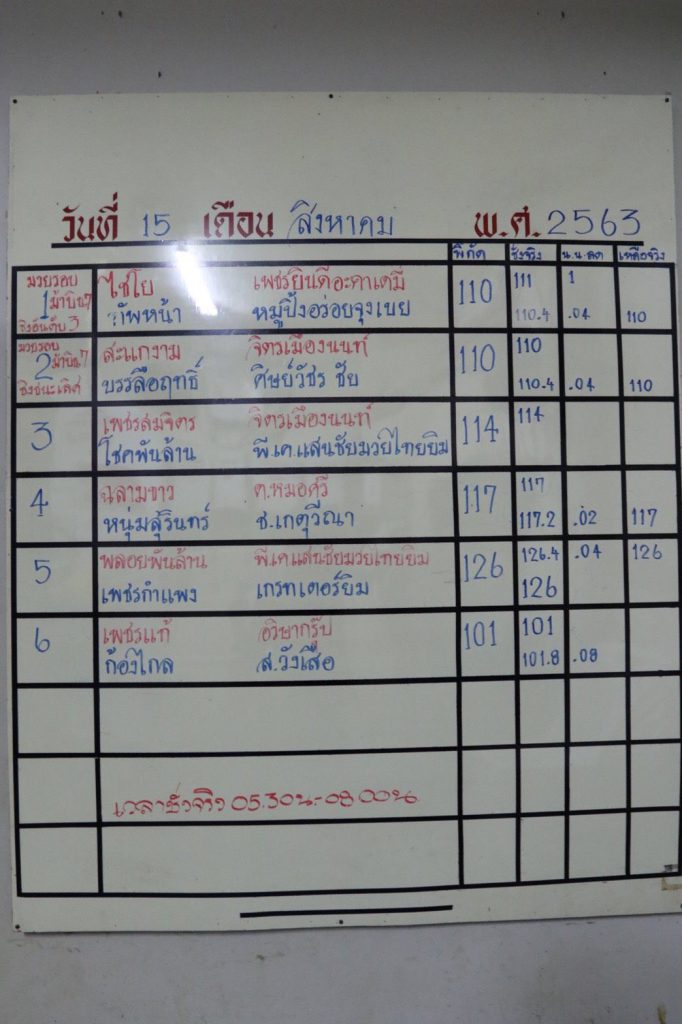 วันที่ 15 เดือน สิงหาคม พ.ศ. 2563
พิกัด ชั่งจริง น.น.ลด เหลือจริง
มวยรอบ
1 ม้าบิน7
ชิงอันดับ 3
ไชโย เพชรยินดีอะคาเดมี 110 111 1
ทัพหน้า หมูปิ้งอร่อยจุงเบย 110.4 .04 110
มวยรอบ
2 ม้าบิน7
ชิงชนะเลิศ
สะแกงาม จิตรเมืองนนท์ 110 110
บรรลือฤทธิ์ ศิษย์วัชรชัย 110.4 .04 110
3 เพชรสมจิตร จิตรเมืองนนท์ 114 114
โชคพันล้าน พี.เค.แสนชัยมวยไทยยิม
4 ฉลามขาว ต.หมอศรี 117 117
หนุ่มสุรินทร์ ช.เกตุวีณา 117.2 .02 117
5 พลอยพันล้าน พี.เค.แสนชัยมวยไทยยิม 126 126.4 .04 126
เพชรกำแพง เกรทเตอร์ยิม 126
6 เพชรแท้ อวิษากรุ๊ป 101 101
ก้องไกล ส.วังเสือ 101.8 .08
เวลาชั่งจริง 05.30น-08.00น